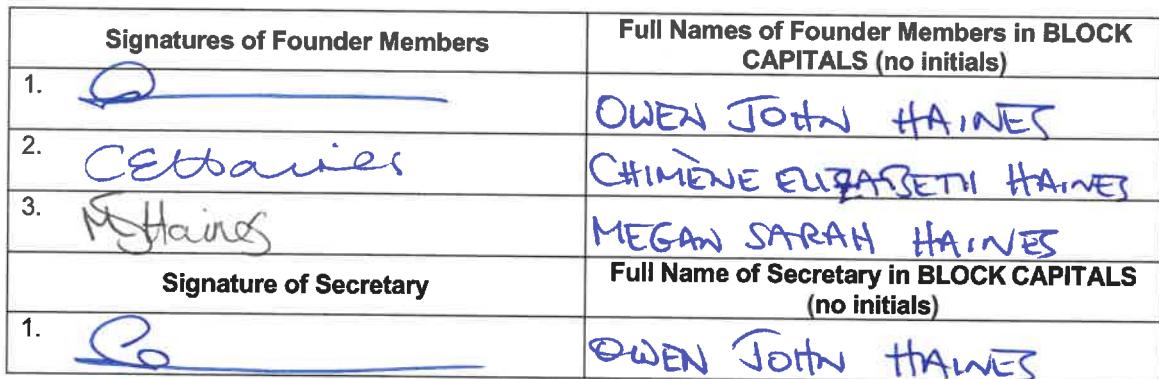 Signatures of Founder Members
Full Names of Founder Members in BLOCK
CAPITALS (no initials)
1.
OWEN JOHN HAINES
2. CEHaines
CHIMÈNE ELIZABETH HAINES
3. MSHaines
MEGAN SARAH HAINES
Signature of Secretary
Full Name of Secretary in BLOCK CAPITALS
(no initials)
1.
OWEN JOHN HAINES